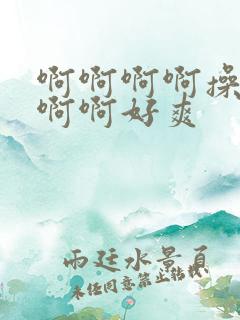 啊啊啊啊操
啊啊好爽
雨廷水景頁
未任同意禁止转载